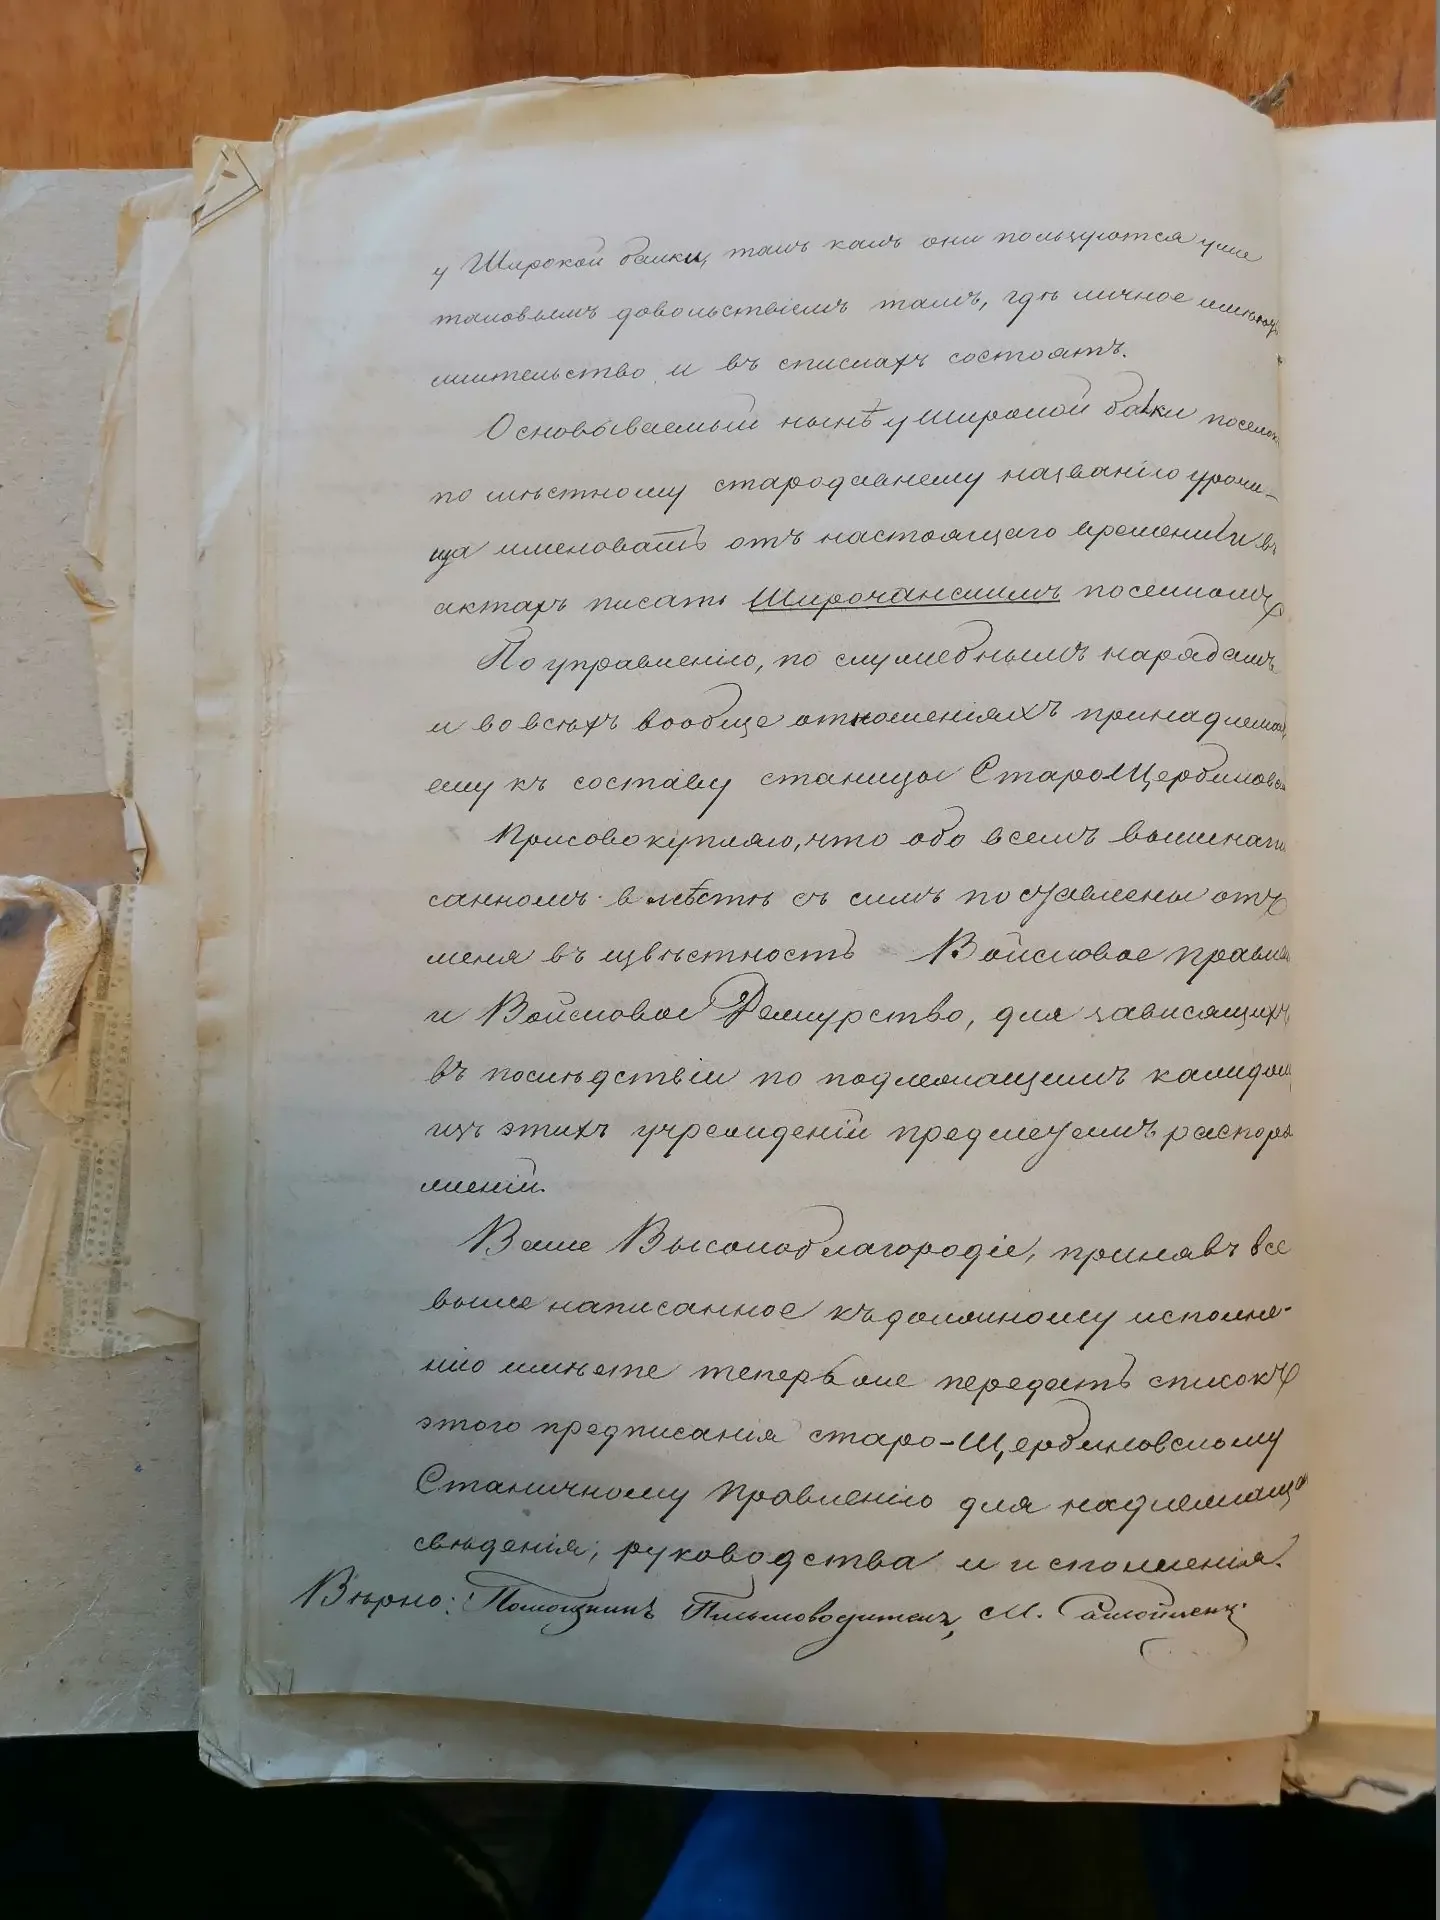 у Широкой балки, такъ какъ они пользуются уже
таковымъ довольствіемъ тамъ, гдѣ личное имѣютъ
жительство и въ спискахъ состоятъ.
Основываемый нынѣ у широкой балки поселок
по мѣстному стародавнему названію урочи-
ща именовать отъ настоящаго времени и въ
актахъ писать Широчанскимъ поселкомъ
По управленію, по служебнымъ нарядамъ
и во всѣхъ вообще отношеніяхъ принадлежащ
ему къ составу станицы СтароЩербиновск
Присовокупляю, что обо всемъ вышенапи
санномъ вмѣстѣ съ симъ поставлены отъ
меня въ извѣстность Войсковое правлен
и Войсковое Дежурство, для зависящихъ
въ послѣдствіи по подлежащимъ каждому
изъ этихъ учрежденій предметамъ распоря
женій.
Ваше Высокоблагородіе, принявъ все
вышенаписанное къ должному исполне-
нію имѣете теперь же передать списокъ
этого предписанія старо-Щербиновскому
Станичному Правленію для надлежаща
свѣденія, руководства и исполненія.
Вѣрно: Помощникъ Письмоводителя, М.